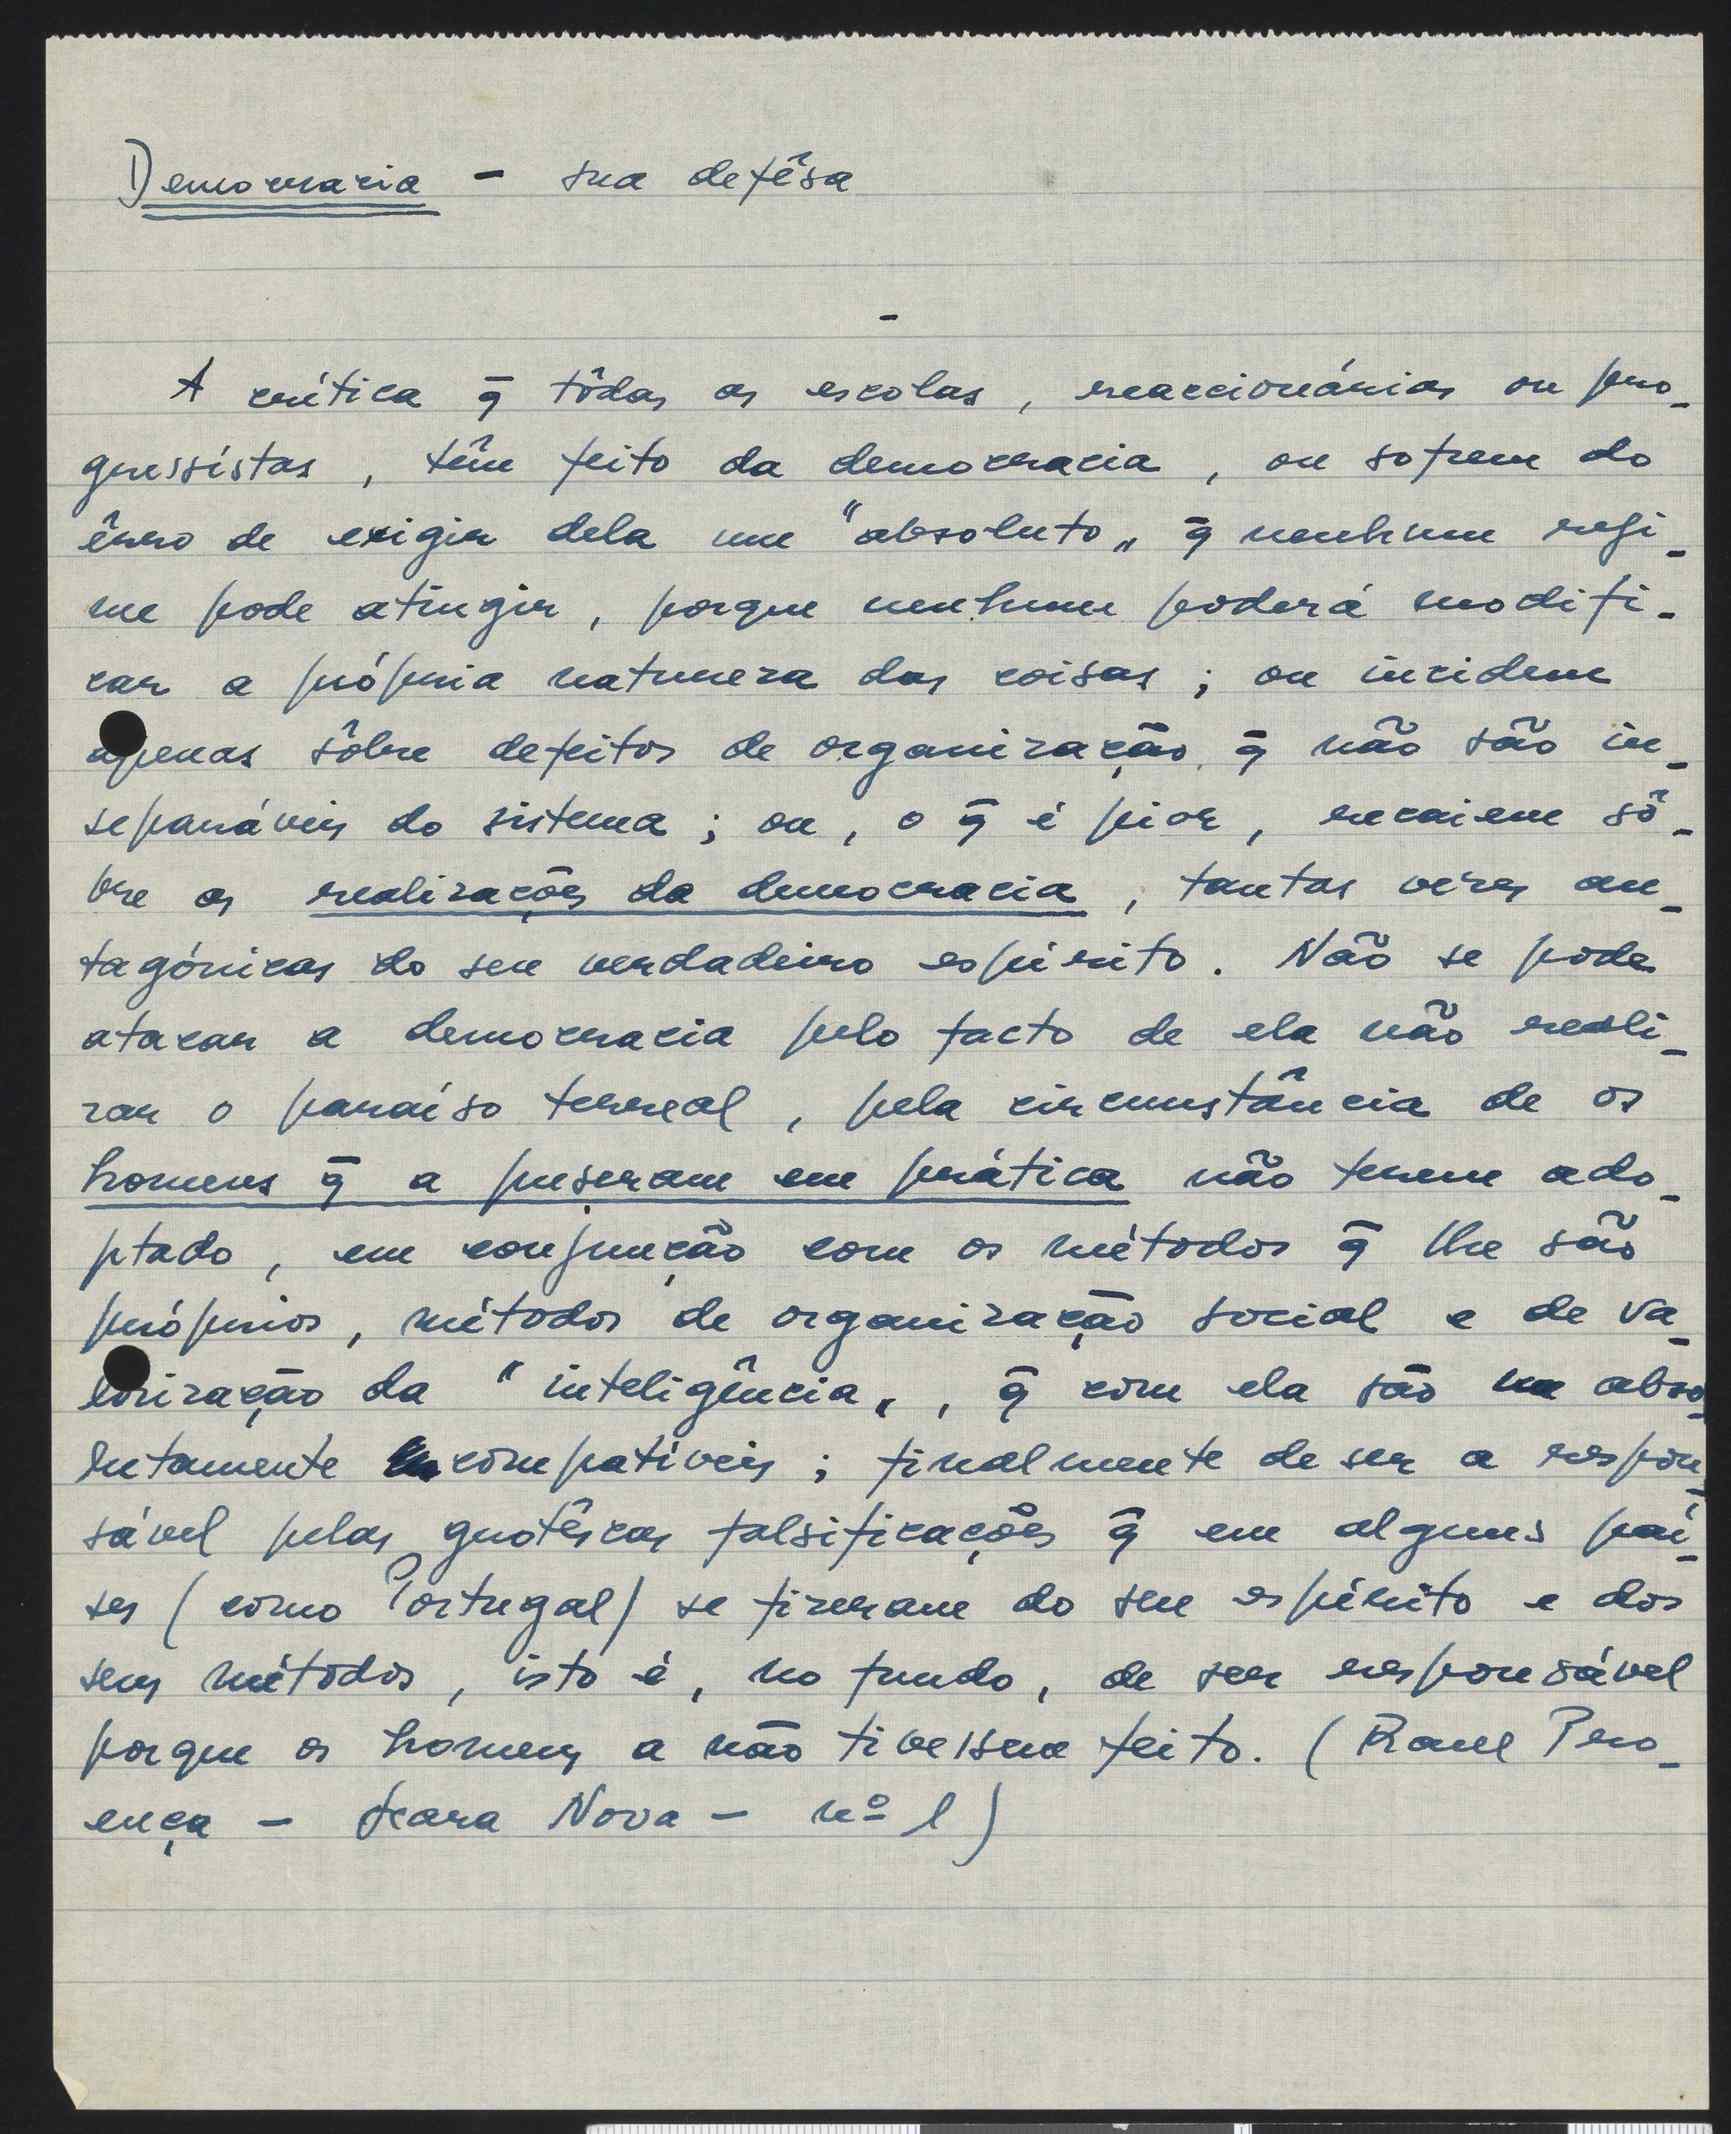 Democracia - sua defêsa
-
A crítica q̄ tôdas as escolas, reaccionárias ou pro-
gressistas, têm feito da democracia, ou sofrem do
êrro de exigir dela um "absoluto" q̄ nenhum regi-
me pode atingir, porque nenhum poderá modifi-
car a própria natureza das coisas; ou incidem
apenas sôbre defeitos de organização q̄ não são in-
separáveis do sistema; ou, o q̄ é pior, recaiem sô-
bre as realizações da democracia, tantas vezes an-
tagónicas do seu verdadeiro espírito. Não se pode
atacar a democracia pelo facto de ela não reali-
zar o paraíso terreal, pela circunstância de os
homens q̄ a puseram em prática não terem ado-
ptado, em conjunção com os métodos q̄ lhe são
próprios, métodos de organização social e de va-
lorização da "inteligência", q̄ com ela são abso-
lutamente compatíveis; finalmente de ser a respon-
sável pelas grotêscas falsificações q̄ em alguns paí-
ses (como Portugal) se fizeram do seu espírito e dos
seus métodos, isto é, no fundo, de ser responsável
porque os homens a não tivessem feito. (Raul Pro-
ença - Seara Nova - nº 1)